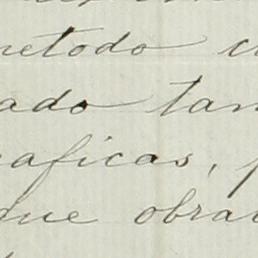 metodo
ado tan
aficas, p
que obra